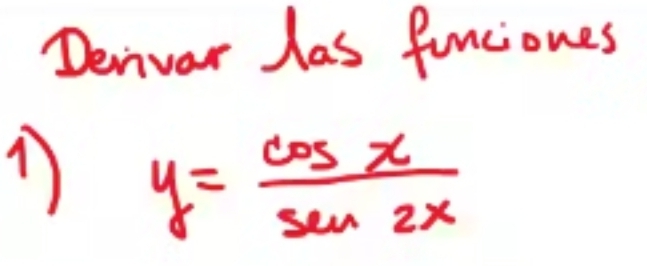 Derivar las funciones
1) y = cos x / sen 2x